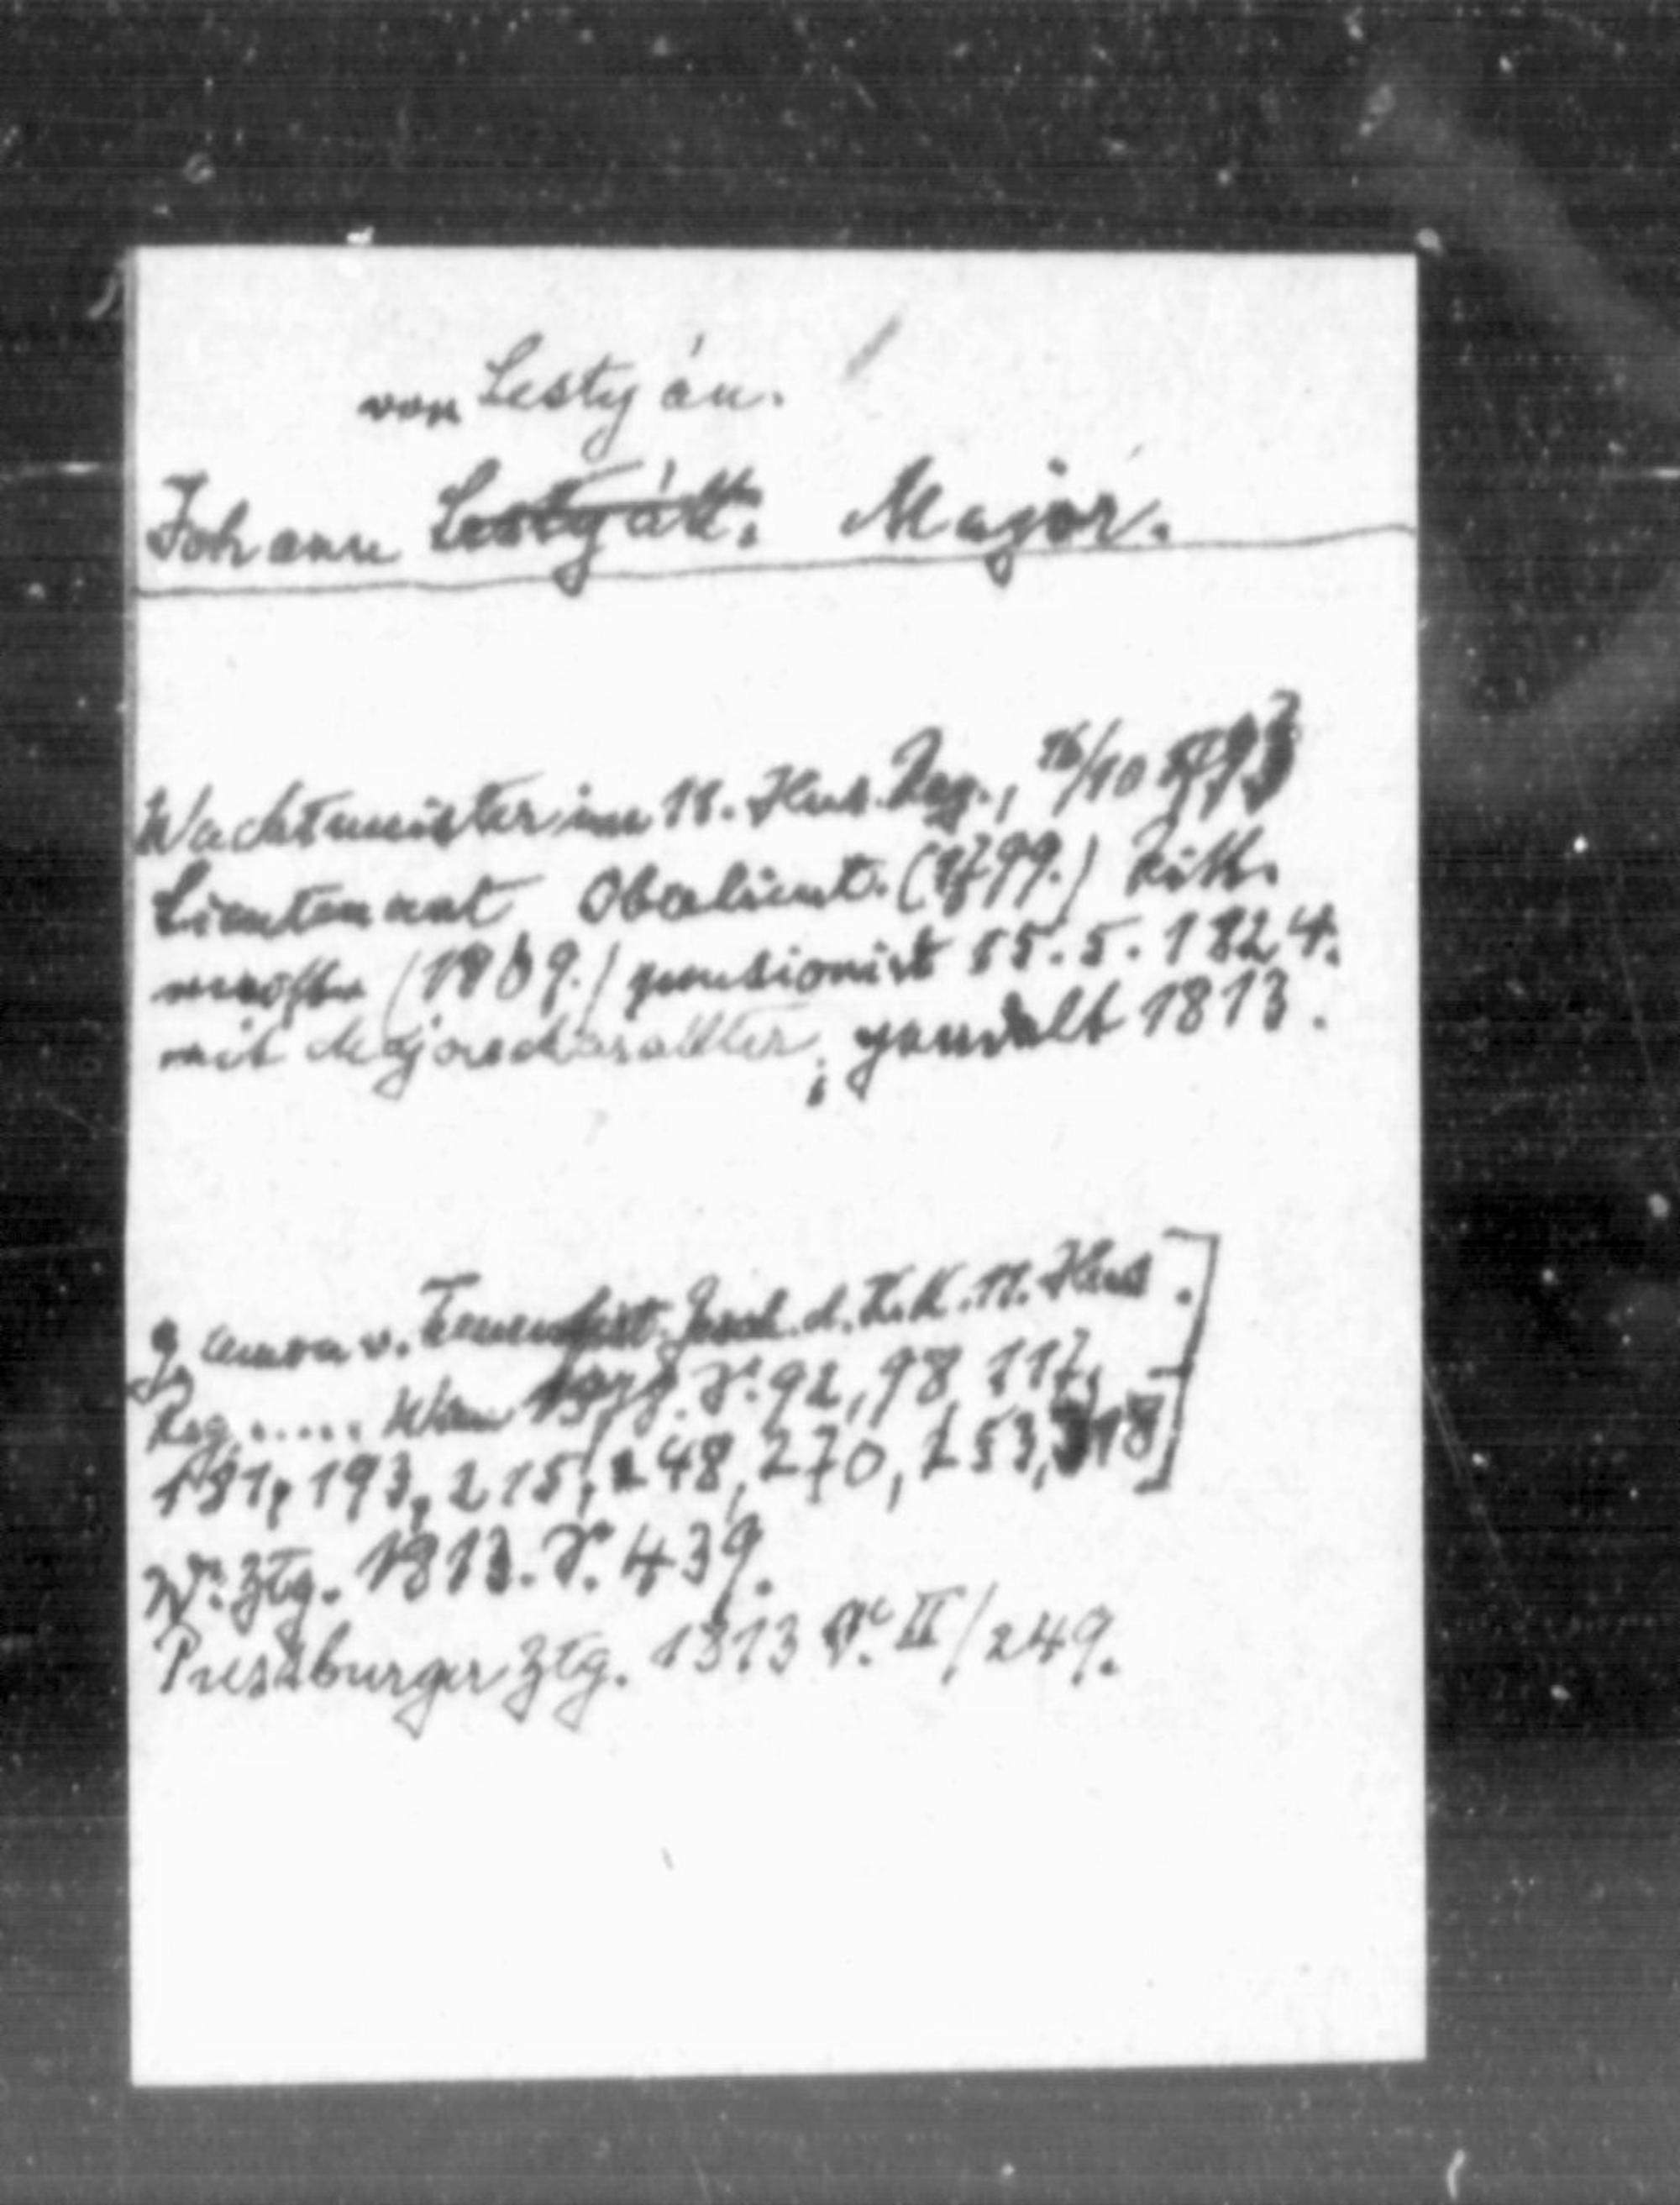 von Lestyán.
Johann Lestyák. Major.
Wachtmeister im 11. Hus. Reg., 16/10 1793
Lieutenant Oberlieut. (1799.) Ritt-
meister (1809.) pensionirt 15.5.1824.
mit Majorscharakter; geadelt 1813.
Gesch. d. K.K. 11. Hus.
Reg..... Wien S. 92, 98, 117,
193, 215, 248, 270, 253, 318]
Wr. Ztg. 1813. S. 439.
Pressburger Ztg. 1813 S. II/249.